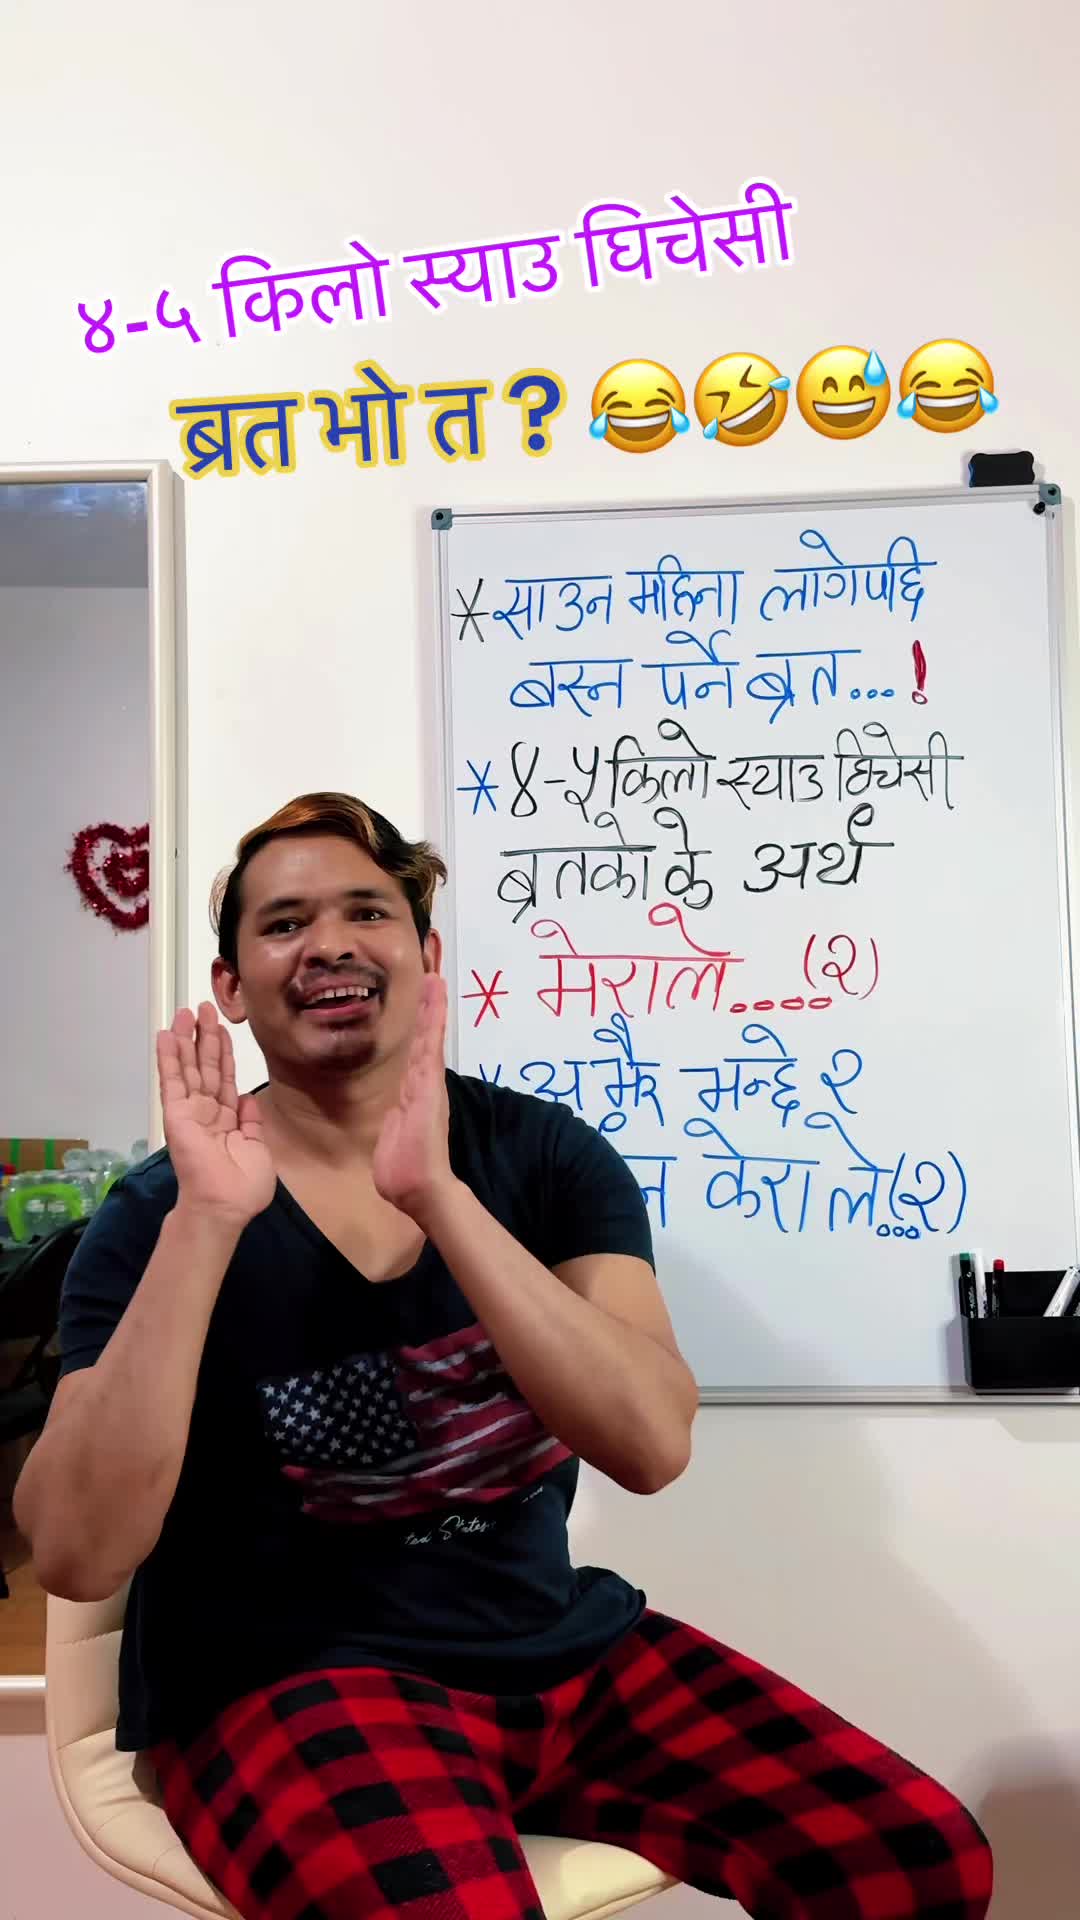 ४-५ किलो स्याउ घिचेसी
ब्रत भो त ? 😂🤣😅😂
* साउन महिना लागेपछि
बस्न पर्ने ब्रत...!
* ४-५ किलो स्याउ घिचेसी
ब्रतको के अर्थ
* मेराले....(२)
अझै मन्छे २
न केराले(२)...
ted States